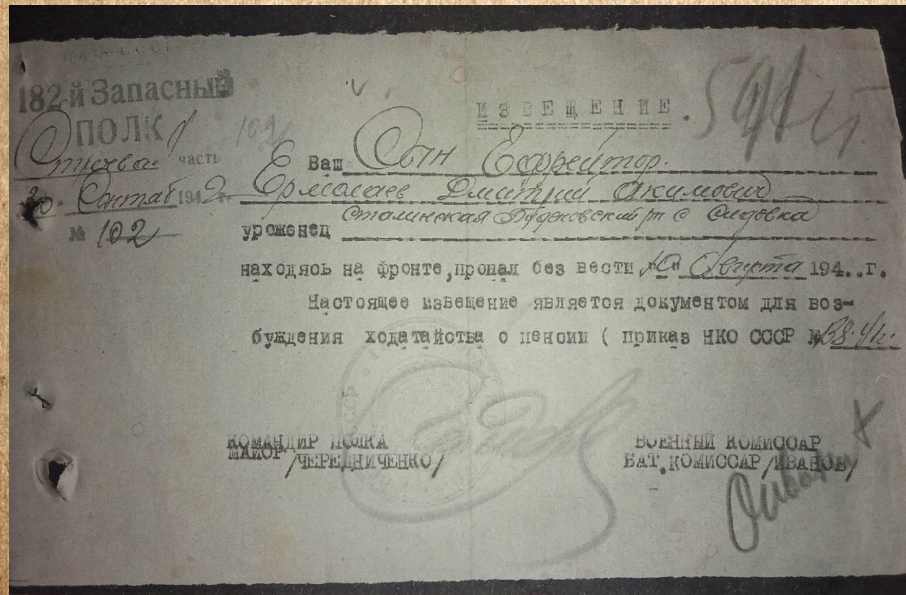 182-й Запасный
ПОЛК
часть 102
Сентяб 1942 г.
№ 102
ИЗВЕЩЕНИЕ.
Ваш Сын Ефрейтор.
Ермолаев Дмитрий Акимович
уроженец Сталинская с
находясь на фронте, пропал без вести Августа 194..г.
Настоящее извещение является документом для воз-
буждения ходатайства о пенсии ( приказ НКО СССР №
КОМАНДИР ПОЛКА
МАЙОР /ЧЕРЕДНИЧЕНКО/
ВОЕННЫЙ КОМИССАР
БАТ.КОМИССАР /ИВАНОВ/